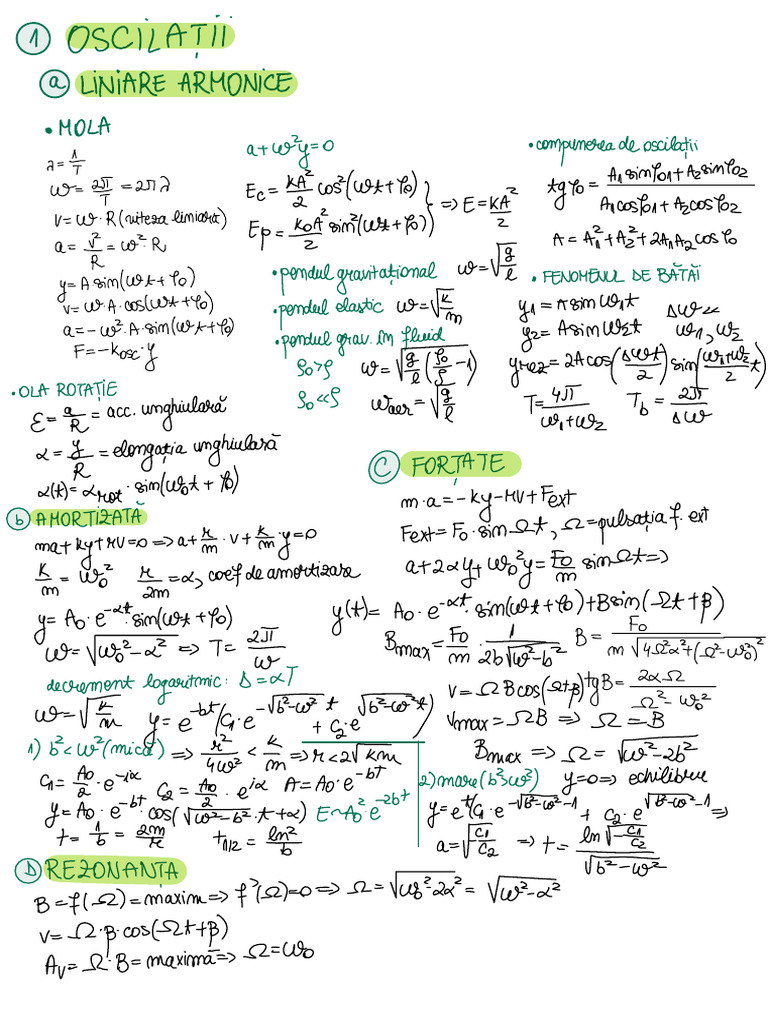 1 OSCILAȚII
a LINIARE ARMONICE
• MOLA
λ = 1/T
ω = 2π/T = 2πλ
v = ω·R (viteza liniară)
a = v²/R = ω²·R
y = A sin(ωt + φ₀)
v = ω·A·cos(ωt + φ₀)
a = -ω²·A·sin(ωt + φ₀)
F = -k_osc·y
a + ω²y = 0
E_c = kA²/2 cos²(ωt + φ₀)
E_p = k₀A²/2 sin²(ωt + φ₀) } => E = kA²/2
• pendul gravitațional ω = √(g/l)
• pendul elastic ω = √(k/m)
• pendul grav. în fluid
ρ₀ > ρ ω = √(g/l (ρ₀/ρ - 1))
ρ₀ << ρ ω_aer = √(g/l)
• compunerea de oscilații
tg φ₀ = (A₁ sin φ₀₁ + A₂ sin φ₀₂)/(A₁ cos φ₀₁ + A₂ cos φ₀₂)
A = A₁² + A₂² + 2A₁A₂ cos φ
• FENOMENUL DE BĂTĂI
y₁ = A sin ω₁t Δω <<
y₂ = A sin ω₂t ω₁, ω₂
y_rez = 2A cos(Δωt/2) sin((ω₁+ω₂)/2 t)
T = 4π/(ω₁+ω₂) T_b = 2π/Δω
• OLA ROTAȚIE
ε = a/R = acc. unghiulară
α = y/R = elongația unghiulară
α(t) = α_rot · sin(ω₀t + φ₀)
b AMORTIZATĂ
ma + ky + rv = 0 => a + r/m · v + k/m · y = 0
k/m = ω₀² r/2m = α, coef de amortizare
y = A₀·e^(-αt)·sin(ωt + φ₀)
ω = √(ω₀² - α²) => T = 2π/ω
decrement logaritmic: Δ = αT
ω = √(k/m) y = e^(-bt)(C₁·e^(-√(b²-ω²) t) + C₂·e^(√(b²-ω²) t))
1) b² < ω² (mică) => r²/4ω² < k/m => r < 2√(km)
C₁ = A₀/2·e^(-iα) C₂ = A₀/2·e^(iα) A = A₀·e^(-bt)
y = A₀·e^(-bt)·cos(√(ω²-b²)·t + α) E ~ A₀² e^(-2bt)
t = 1/b = 2m/r t_(1/2) = ln2/b
2) mare (b² > ω²) y = 0 => echilibru
y = e^t(C₁·e^(-√(b²-ω²-1)) + C₂·e^(√(b²-ω²-1)) =>
a = √(-C₁/C₂) => t = ln√(-C₁/C₂)/√(b²-ω²)
C FORȚATE
m·a = -ky - rv + F_ext
F_ext = F₀·sin Ωt, Ω = pulsația f. ext
a + 2αy + ω₀²y = F₀/m sin Ωt =>
y(t) = A₀·e^(-αt)·sin(ωt + φ₀) + B sin(Ωt + β)
B_max = F₀/m · 1/(2b√(ω²-b²)) B = F₀/(m√(4Ω²α² + (Ω²-ω₀²)²))
v = ΩB cos(Ωt + β) tg B = 2αΩ/(Ω² - ω₀²)
v_max = ΩB => Ω = B
B_max => Ω = √(ω² - 2b²)
D REZONANȚA
B = f(Ω) = maxim => f'(Ω) = 0 => Ω = √(ω₀² - 2α²) = √(ω² - α²)
v = Ω·β·cos(Ωt + β)
A_v = Ω·B = maximă => Ω = ω₀